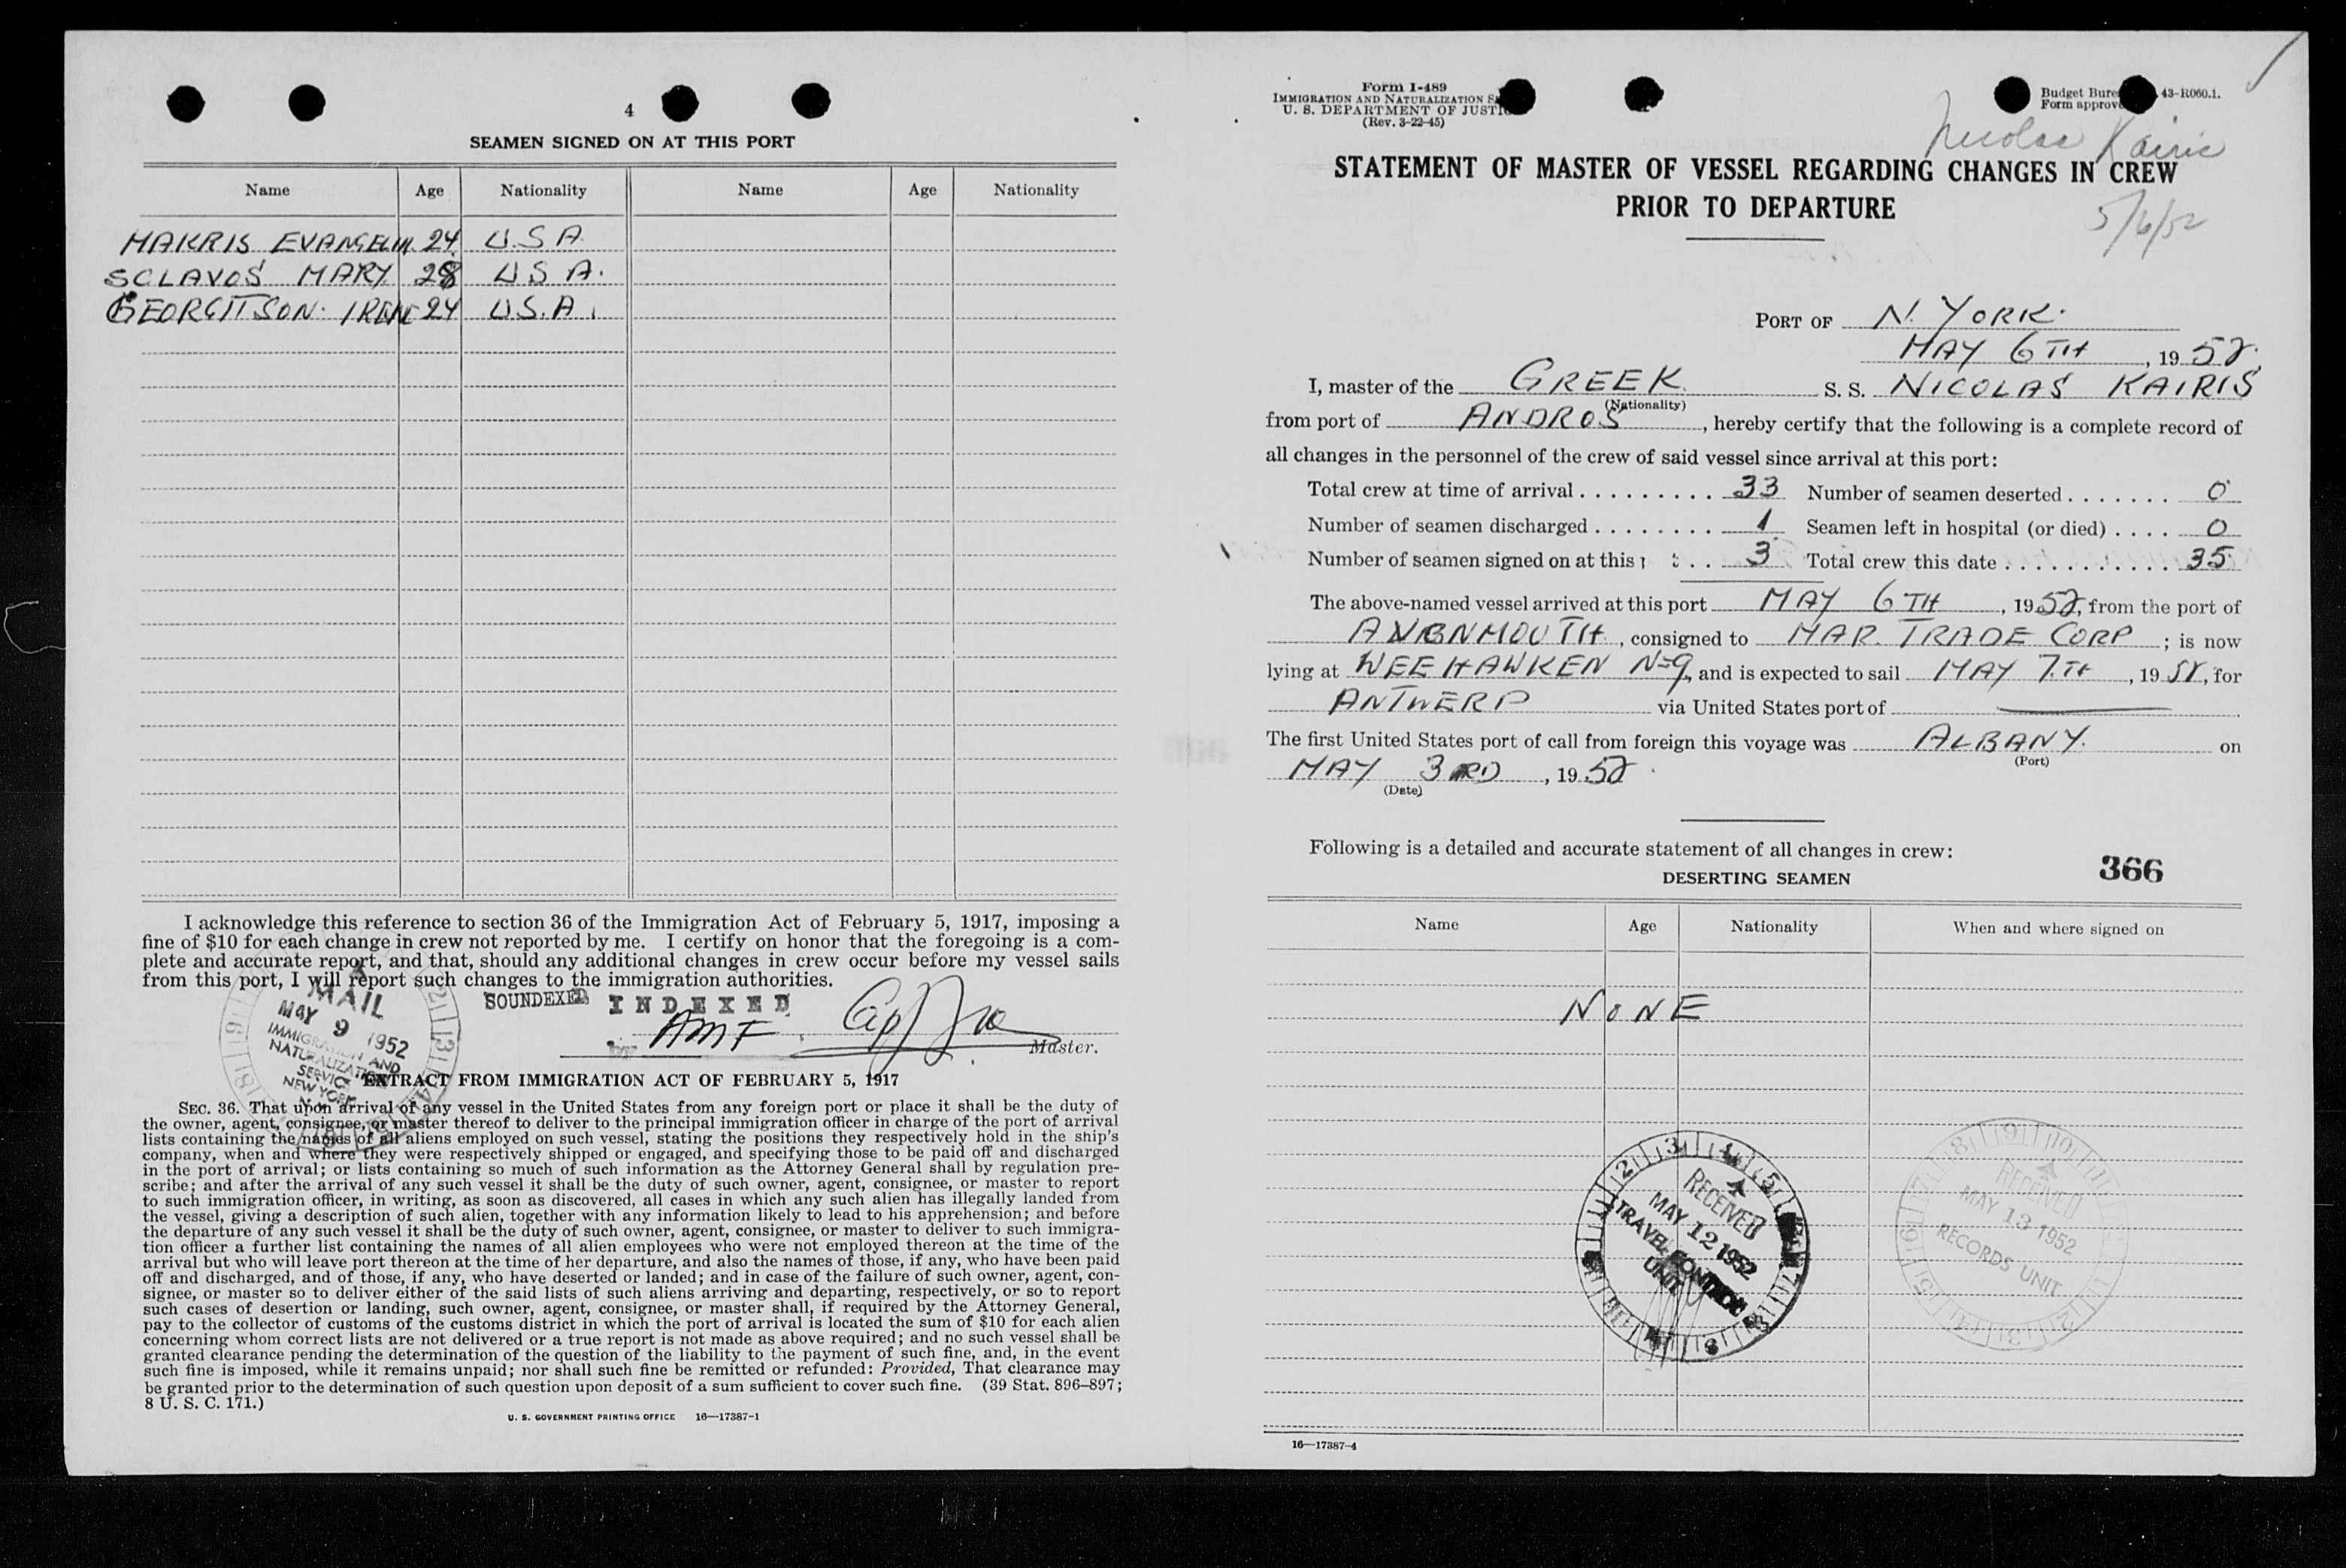 4
SEAMEN SIGNED ON AT THIS PORT
Name Age Nationality Name Age Nationality
HARRIS EVANGELIN 24 U.S A
SCLAVOS MARY 28 U S A.
GEORGITSON. IRENE 24 U.S.A.
I acknowledge this reference to section 36 of the Immigration Act of February 5, 1917, imposing a
fine of $10 for each change in crew not reported by me. I certify on honor that the foregoing is a com-
plete and accurate report, and that, should any additional changes in crew occur before my vessel sails
from this port, I will report such changes to the immigration authorities.
MAIL
MAY 9 1952
IMMIGRATION AND
NATURALIZATION
SERVICE
NEW YORK
SOUNDEXED INDEXED
by AMF
Master.
EXTRACT FROM IMMIGRATION ACT OF FEBRUARY 5, 1917
SEC. 36. That upon arrival of any vessel in the United States from any foreign port or place it shall be the duty of
the owner, agent, consignee, or master thereof to deliver to the principal immigration officer in charge of the port of arrival
lists containing the names of all aliens employed on such vessel, stating the positions they respectively hold in the ship's
company, when and where they were respectively shipped or engaged, and specifying those to be paid off and discharged
in the port of arrival; or lists containing so much of such information as the Attorney General shall by regulation pre-
scribe; and after the arrival of any such vessel it shall be the duty of such owner, agent, consignee, or master to report
to such immigration officer, in writing, as soon as discovered, all cases in which any such alien has illegally landed from
the vessel, giving a description of such alien, together with any information likely to lead to his apprehension; and before
the departure of any such vessel it shall be the duty of such owner, agent, consignee, or master to deliver to such immigra-
tion officer a further list containing the names of all alien employees who were not employed thereon at the time of the
arrival but who will leave port thereon at the time of her departure, and also the names of those, if any, who have been paid
off and discharged, and of those, if any, who have deserted or landed; and in case of the failure of such owner, agent, con-
signee, or master so to deliver either of the said lists of such aliens arriving and departing, respectively, or so to report
such cases of desertion or landing, such owner, agent, consignee, or master shall, if required by the Attorney General,
pay to the collector of customs of the customs district in which the port of arrival is located the sum of $10 for each alien
concerning whom correct lists are not delivered or a true report is not made as above required; and no such vessel shall be
granted clearance pending the determination of the question of the liability to the payment of such fine, and, in the event
such fine is imposed, while it remains unpaid; nor shall such fine be remitted or refunded: Provided, That clearance may
be granted prior to the determination of such question upon deposit of a sum sufficient to cover such fine. (39 Stat. 896–897;
8 U. S. C. 171.)
U. S. GOVERNMENT PRINTING OFFICE 16—17387-1
Form I-489
IMMIGRATION AND NATURALIZATION S
U. S. DEPARTMENT OF JUSTIC
(Rev. 3-22-45)
Budget Bure 43-R060.1.
Form approve
Nicolas Kairis
5/6/52
STATEMENT OF MASTER OF VESSEL REGARDING CHANGES IN CREW
PRIOR TO DEPARTURE
PORT OF N. YORK.
MAY 6TH, 1952.
I, master of the GREEK S. S. NICOLAS KAIRIS
(Nationality)
from port of ANDROS, hereby certify that the following is a complete record of
all changes in the personnel of the crew of said vessel since arrival at this port:
Total crew at time of arrival . . . . . . . . . 33 Number of seamen deserted . . . . . . . 0
Number of seamen discharged . . . . . . . . 1 Seamen left in hospital (or died) . . . . 0
Number of seamen signed on at this . . 3 Total crew this date . . . . . . . . . . . . 35
The above-named vessel arrived at this port MAY 6TH, 1952, from the port of
AVONMOUTH, consigned to MAR. TRADE CORP; is now
lying at WEEHAWKEN N=9, and is expected to sail MAY 7.TH, 1952, for
ANTWERP via United States port of
The first United States port of call from foreign this voyage was ALBANY. on
(Port)
MAY 3RD, 1952.
(Date)
Following is a detailed and accurate statement of all changes in crew:
366
DESERTING SEAMEN
Name Age Nationality When and where signed on
NONE
RECEIVED
MAY 12 1952
TRAVEL CONTROL
UNIT
RECEIVED
MAY 13 1952
RECORDS UNIT
16—17387-4